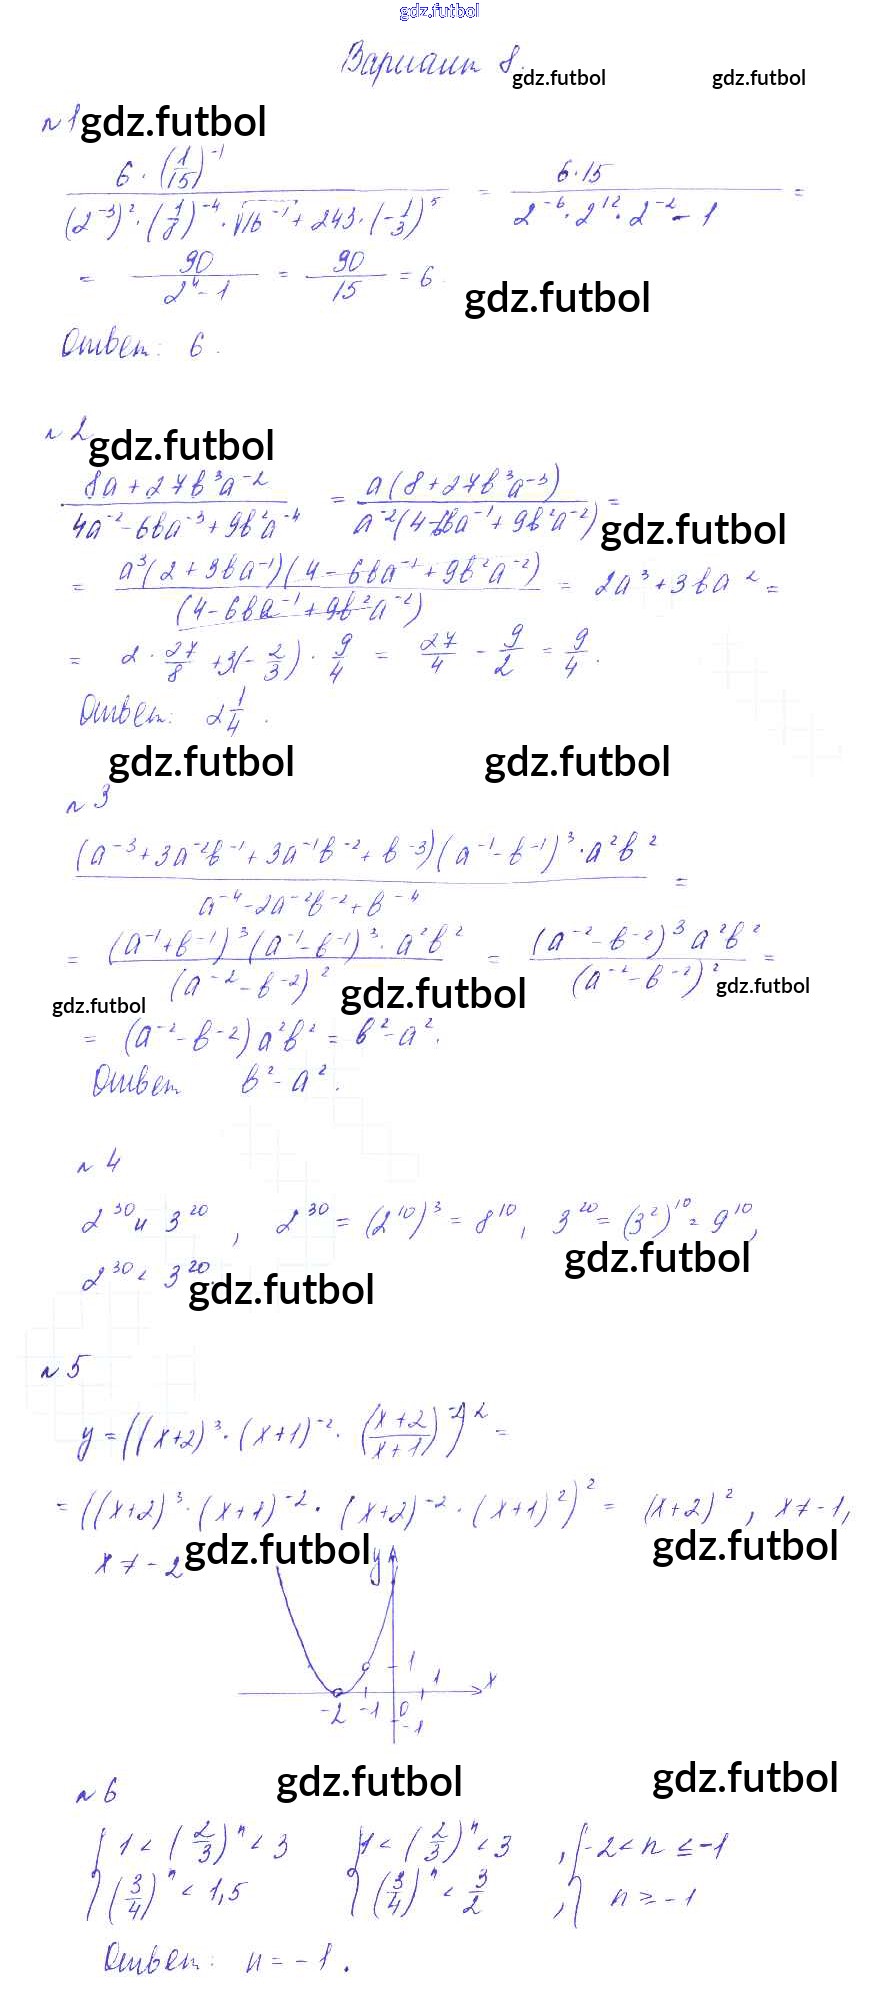 gdz.futbol
Вариант 8.
gdz.futbol gdz.futbol
№1 gdz.futbol
(6 · (1/15)⁻¹) / ((2⁻³)² · (1/8)⁻⁴ · √16⁻¹ + 243 · (-1/3)⁵) = (6·15) / (2⁻⁶ · 2¹² · 2⁻² - 1) =
= 90 / (2⁴ - 1) = 90/15 = 6.
gdz.futbol
Ответ: 6.
№2
gdz.futbol
(8a + 27b³a⁻²) / (4a⁻² - 6ba⁻³ + 9b²a⁻⁴) = a(8 + 27b³a⁻³) / (a⁻²(4 - 6ba⁻¹ + 9b²a⁻²)) =
gdz.futbol
= a³(2 + 3ba⁻¹)(4 - 6ba⁻¹ + 9b²a⁻²) / (4 - 6ba⁻¹ + 9b²a⁻²) = 2a³ + 3ba² =
= 2 · 27/8 + 3(-2/3) · 9/4 = 27/4 - 9/2 = 9/4.
Ответ: 2 1/4.
gdz.futbol gdz.futbol
№3
(a⁻³ + 3a⁻²b⁻¹ + 3a⁻¹b⁻² + b⁻³)(a⁻¹ - b⁻¹)³ · a²b² / (a⁻⁴ - 2a⁻²b⁻² + b⁻⁴) =
= (a⁻¹ + b⁻¹)³(a⁻¹ - b⁻¹)³ · a²b² / (a⁻² - b⁻²)² = (a⁻² - b⁻²)³ a²b² / (a⁻² - b⁻²)² =
gdz.futbol gdz.futbol gdz.futbol
= (a⁻² - b⁻²) a²b² = b² - a².
Ответ b² - a².
№4
2³⁰ и 3²⁰, 2³⁰ = (2¹⁰)³ = 8¹⁰, 3²⁰ = (3²)¹⁰ = 9¹⁰,
gdz.futbol
2³⁰ < 3²⁰.
gdz.futbol
№5
y = ((x+2)³ · (x+1)⁻² · ((x+2)/(x+1))⁻²)² =
= ((x+2)³ · (x+1)⁻² · (x+2)⁻² · (x+1)²)² = (x+2)², x ≠ -1,
x ≠ -2
gdz.futbol gdz.futbol
y
1
1 x
-2 -1 0
-1
№6 gdz.futbol gdz.futbol
{1 < (2/3)ⁿ < 3 {1 < (2/3)ⁿ < 3, {-2 < n ≤ -1
(3/4)ⁿ < 1,5 (3/4)ⁿ < 3/2, n ≥ -1
Ответ: n = -1.